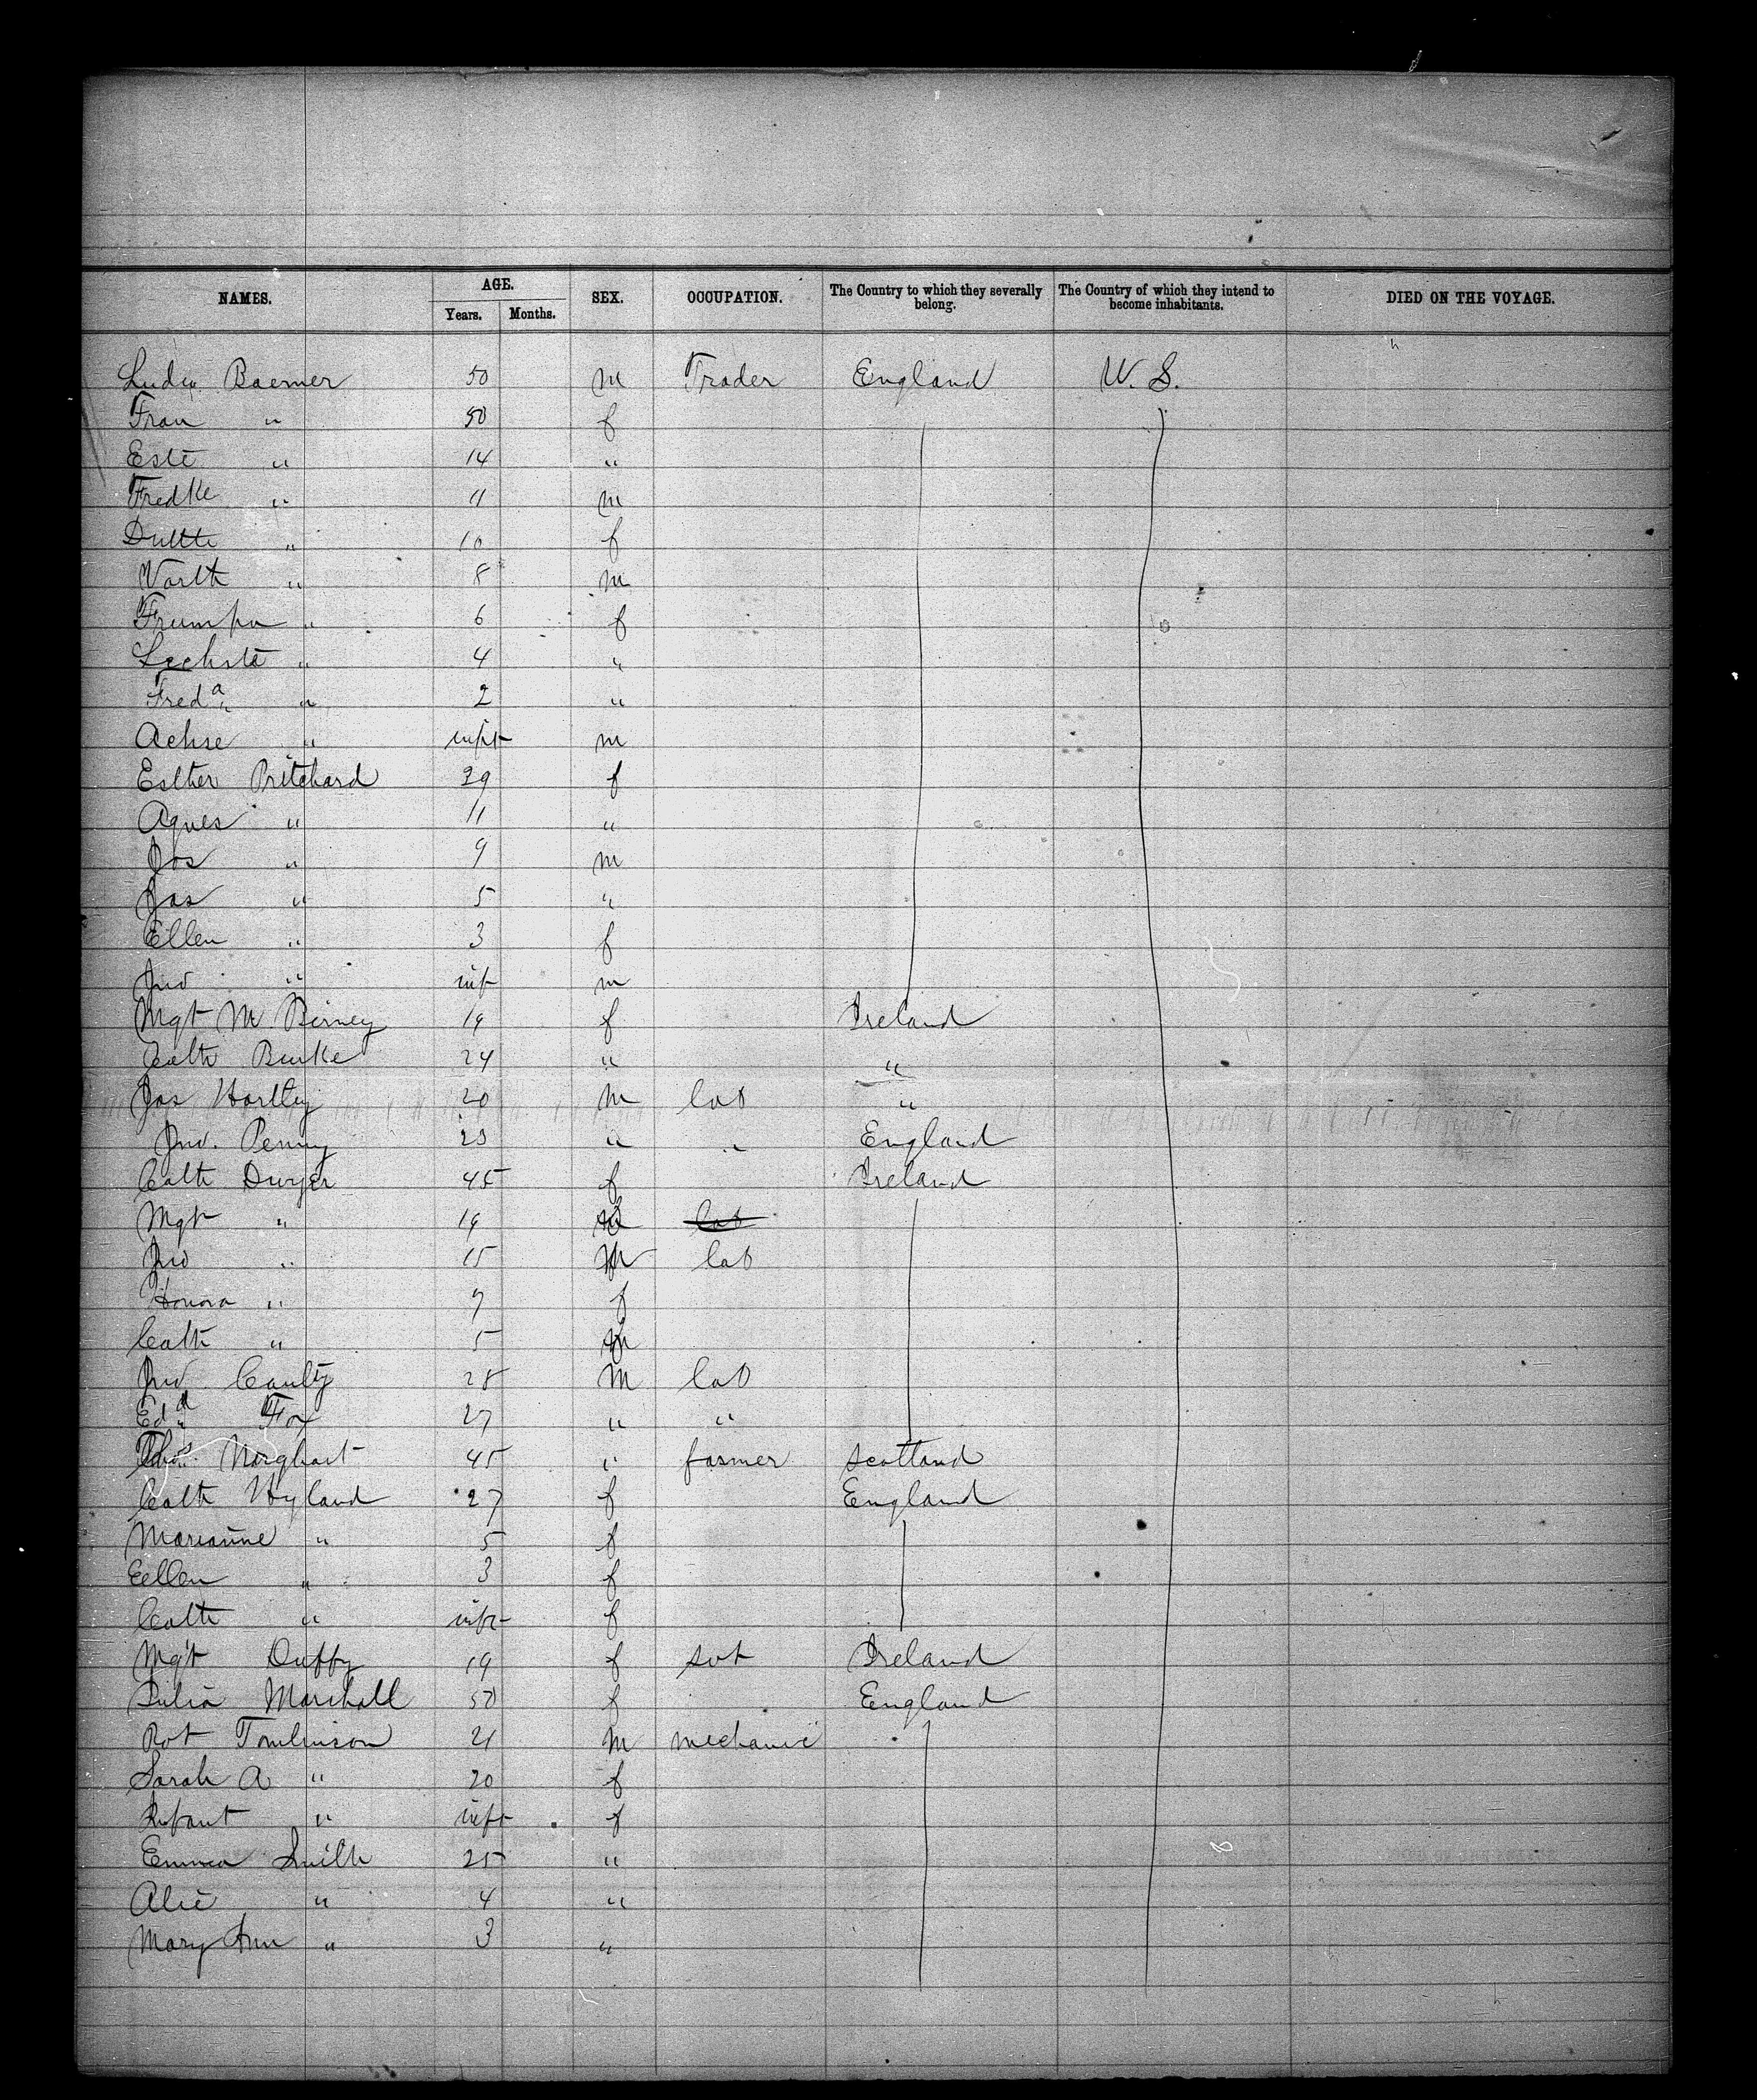 NAMES. AGE. SEX. OCCUPATION. The Country to which they severally belong. The Country of which they intend to become inhabitants. DIED ON THE VOYAGE.
Years. Months.
Ludw Baerner 50 m Trader England U. S.
Frau " 50 f
Este " 14 "
Fredke " 11 m
Dultte " 10 f
Warlte " 8 m
Frumpa " 6 f
Lechste " 4 "
Fred a " 2 "
Achse " infst m
Esther Pritchard 29 f
Agnes " 11 "
Jos " 9 m
Jas " 5 "
Ellen " 3 f
Jno " inft m
Mgt Mc Birney 19 f Ireland
Cath Burke 24 " "
Jas Hartley 20 m lab "
Jno. Penny 23 " " England
Cath Dwyer 45 f Ireland
Mgt " 19 lab
Jno " 15 m lab
Honora " 7 f
Cath " 5 f
Jno Canlty 28 m lab
Edd Fox 27 " "
Thos 45 " farmer Scotland
Cath Hyland 27 f England
Marianne " 5 f
Eellen " 3 f
Cath " inft f
Mgt Duffy 19 f svt Ireland
Julia Marshall 50 f England
Rot Tomlinson 21 m mechanic
Sarah A " 20 f
Infant " inft f
Emma Smith 25 "
Alie " 4 "
Mary Ann " 3 "